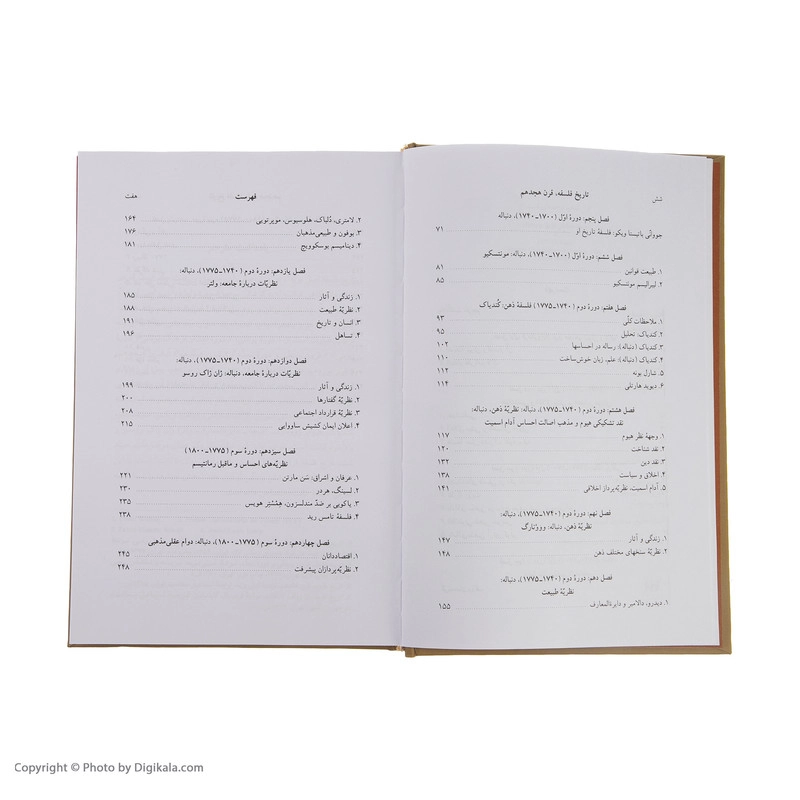 شش
تاریخ فلسفه، قرن هجدهم
فصل پنجم: دورهٔ اوّل (۱۷۰۰-۱۷۴۰)، دنباله
جووانّی باتیستا ویکو: فلسفهٔ تاریخ او ۷۱
فصل ششم: دورهٔ اوّل (۱۷۰۰-۱۷۴۰)، دنباله: مونتسکیو
۱. طبیعت قوانین ۸۱
۲. لیبرالیسم مونتسکیو ۸۵
فصل هفتم: دورهٔ دوم (۱۷۴۰-۱۷۷۵) فلسفهٔ ذهن: کُندیاک
۱. ملاحظات کلّی ۹۳
۲. کندیاک: تحلیل ۹۵
۳. کندیاک (دنباله): رساله در احساسها ۱۰۲
۴. کندیاک (دنباله): علم، زبان خوش‌ساخت ۱۱۰
۵. شارل بونه ۱۱۲
۶. دیوید هارتلی ۱۱۴
فصل هشتم: دورهٔ دوم (۱۷۴۰-۱۷۷۵)، دنباله: نظریّهٔ ذهن، دنباله:
نقد تشکیکی هیوم و مذهب اصالت احساس آدام اسمیت
۱. وجههٔ نظر هیوم ۱۱۷
۲. نقد شناخت ۱۲۰
۳. نقد دین ۱۳۲
۴. اخلاق و سیاست ۱۳۸
۵. آدام اسمیت، نظریّه‌پرداز اخلاقی ۱۴۱
فصل نهم: دورهٔ دوم (۱۷۴۰-۱۷۷۵)، دنباله:
نظریّهٔ ذهن، دنباله: ووونارگ
۱. زندگی و آثار ۱۴۷
۲. نظریّهٔ سنخهای مختلف ذهن ۱۴۸
فصل دهم: دورهٔ دوم (۱۷۴۰-۱۷۷۵)، دنباله:
نظریّهٔ طبیعت
۱. دیدرو، دالامبر و دایرةالمعارف ۱۵۵
فهرست
هفت
۲. لامتری، دُلباک، هلوسیوس، موپرتویی ۱۶۴
۳. بوفون و طبیعی‌مذهبان ۱۷۶
۴. دینامیسم بوسکوویچ ۱۸۱
فصل یازدهم: دورهٔ دوم (۱۷۴۰-۱۷۷۵)، دنباله:
نظریّات دربارهٔ جامعه: ولتر
۱. زندگی و آثار ۱۸۵
۲. نظریّهٔ طبیعت ۱۸۸
۳. انسان و تاریخ ۱۹۱
۴. تساهل ۱۹۶
فصل دوازدهم: دورهٔ دوم (۱۷۴۰-۱۷۷۵)، دنباله:
نظریّات دربارهٔ جامعه، دنباله: ژان ژاک روسو
۱. زندگی و آثار ۱۹۹
۲. نظریّهٔ گفتارها ۲۰۰
۳. نظریّهٔ قرارداد اجتماعی ۲۰۸
۴. اعلان ایمان کشیش ساووایی ۲۱۵
فصل سیزدهم: دورهٔ سوم (۱۷۷۵-۱۸۰۰)
نظریّه‌های احساس و ماقبل رمانتیسم
۱. عرفان و اشراق: سَن مارتن ۲۲۱
۲. لسینگ، هردر ۲۳۰
۳. یاکوبی بر ضدّ مندلسزون، هِمْسْتِر هویس ۲۳۵
۴. فلسفهٔ تامس رید ۲۳۸
فصل چهاردهم: دورهٔ سوم (۱۷۷۵-۱۸۰۰)، دنباله: دوام عقلی‌مذهبی
۱. اقتصاددانان ۲۴۵
۲. نظریّه‌پردازان پیشرفت ۲۴۸
Copyright © Photo by Digikala.com